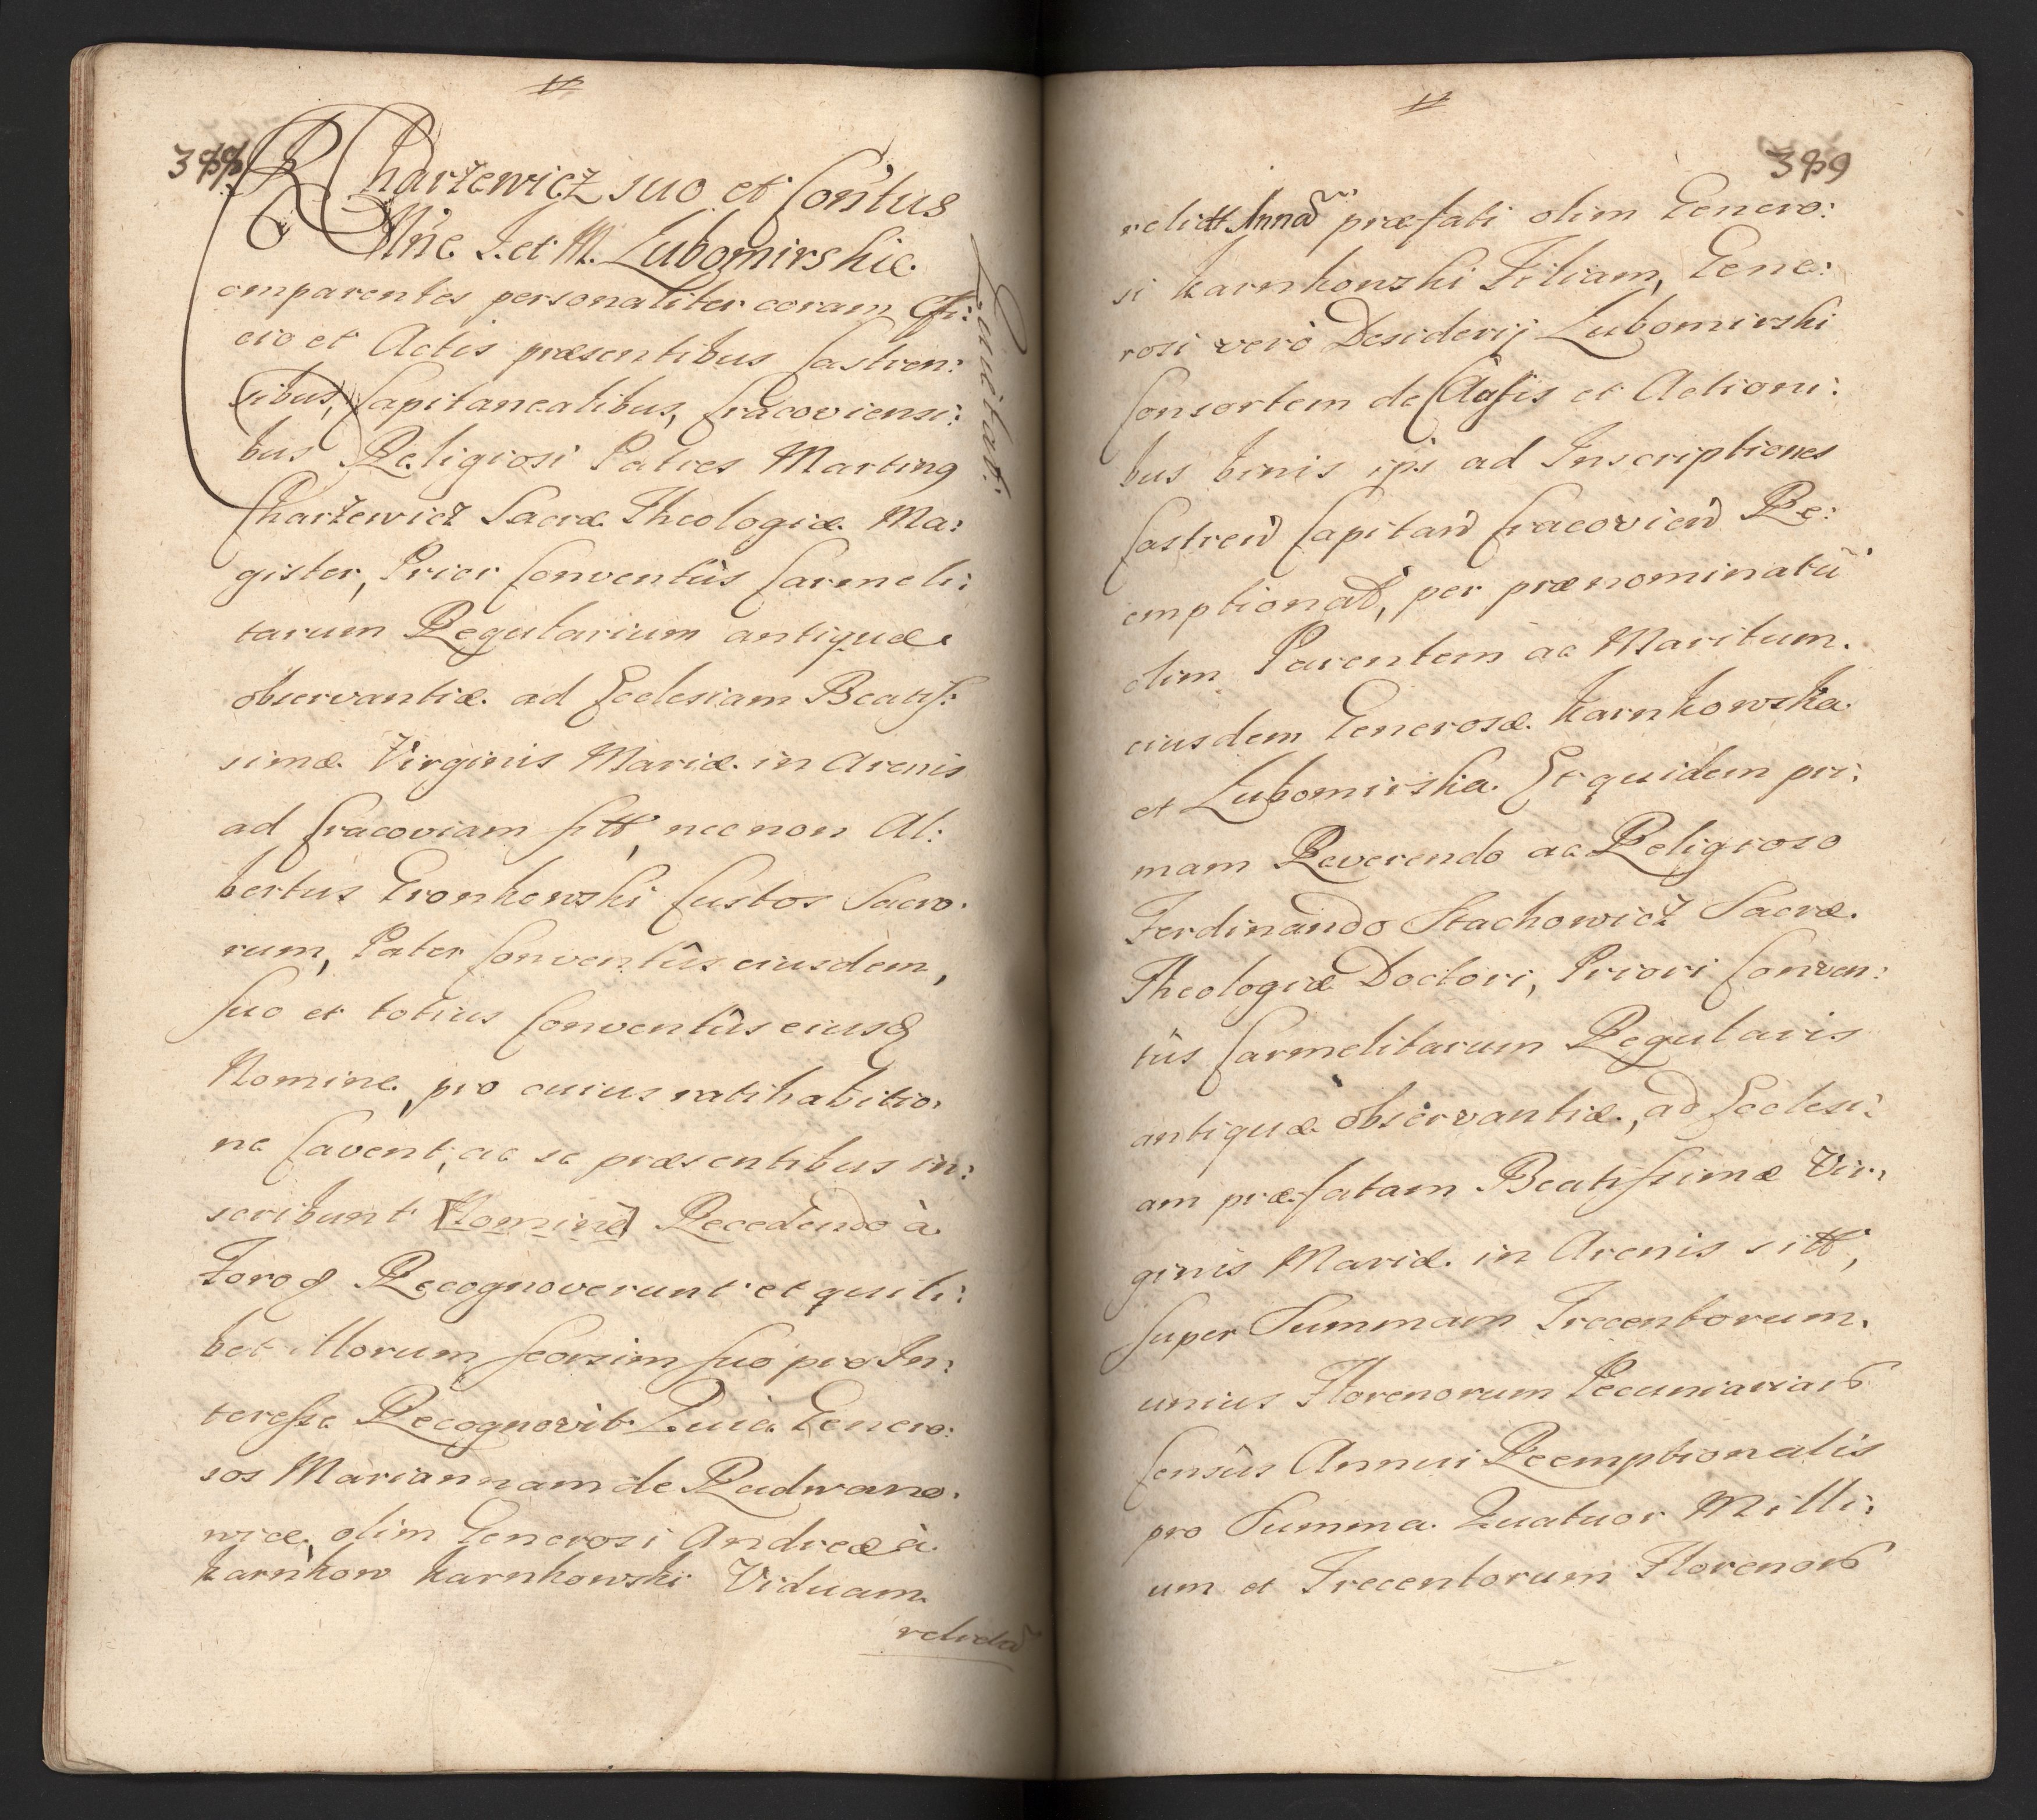 388
RR Charzewicz suo et Contus
Nñe J. et M. Lubomirskie
Comparentes personaliter coram Offi:
cio et Actis præsentibus Castren:
sibus, Capitanealibus, Cracoviensi:
bus Religiosi Patres Martinus
Charzewicz Sacræ Theologiæ Ma:
gister, Prior Conventûs Carmeli:
tarum Regularium antiquæ
observantiæ ad Ecclesiam Beatis:
simæ Virginis Mariæ in Arenis
ad Cracoviam sitt, necnon Al:
bertus Gronkowski Custos Sacro:
rum, Pater Conventûs eiusdem,
suo et totius Conventûs eiusd
Nomine, pro cuius ratihabitio:
ne Cavent, ac se præsentibus in:
scribunt [Nomine] Recedendo à
Foro q Recognoverunt et quili:
bet illorum seorsim suo pro In:
teresse Recognovit Quia Genero:
sos Mariannam de Radwano:
wice, olim Generosi Andreæ à
Karnkow Karnkowski Viduam
relictã
Quietat:
389
relictt Annã præfati olim Genero:
si Karnkowski Filiam, Gene:
rosi verò Desiderij Lubomirski
Consortem de Causis et Actioni:
bus binis ipsi ad Inscriptiones
Castren Capitan Cracovien Re:
emptional, per prænominatũ
olim Parentem ac Maritum
eiusdem Generosæ Karnkowska
et Lubomirska. Et quidem pri:
mam Reverendo ac Religioso
Ferdinando Stachowicz Sacræ
Theologiæ Doctori, Priori Conven:
tûs Carmelitarum Regularis
antiquæ observantiæ, ad Ecclesi:
am præfatam Beatissimæ Vir:
ginis Mariæ in Arenis sitt,
super Summam Trecentorum
unius Florenorum Pecuniariar
Censûs Annui Reemptionalis
pro Summa Quatuor Milli:
um et Trecentorum Florenor